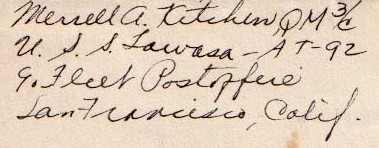 Merrell A. Kitchen, QM 3/c
U. S. S. Tawasa - AT-92
℅ Fleet Postoffice
San Francisco, Calif.